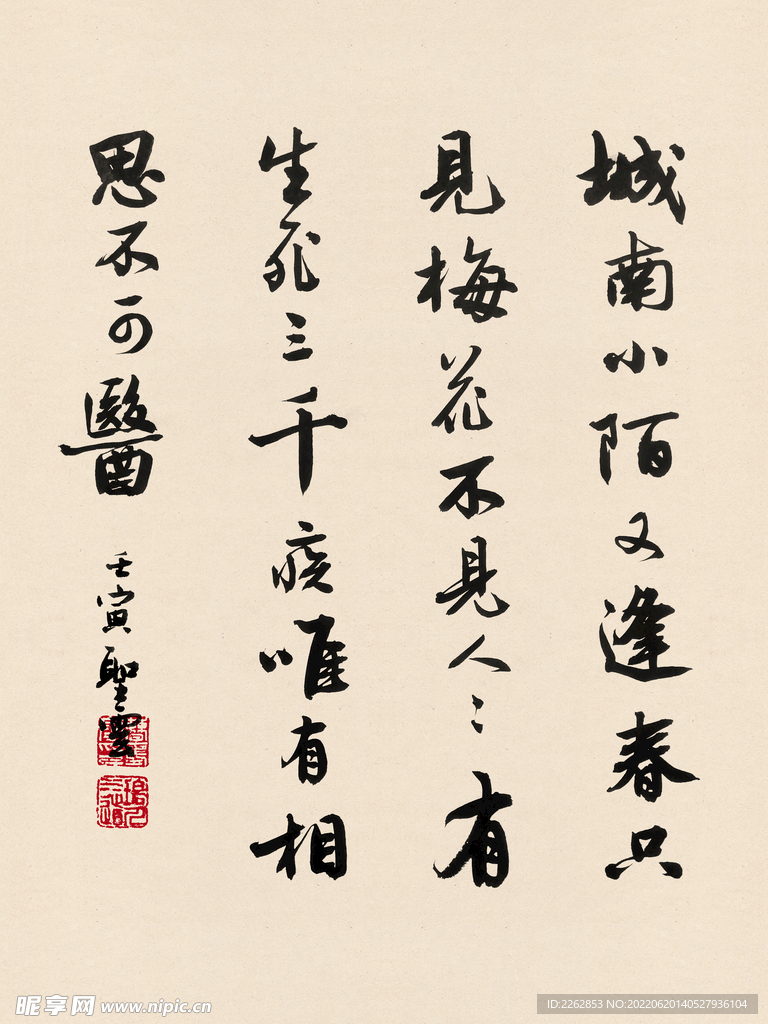 城南小陌又逢春只
見梅花不見人〻有
生死三千疾唯有相
思不可醫
壬寅聖雲
昵享网 www.nipic.cn
ID:2262853 NO:20220620140527936104